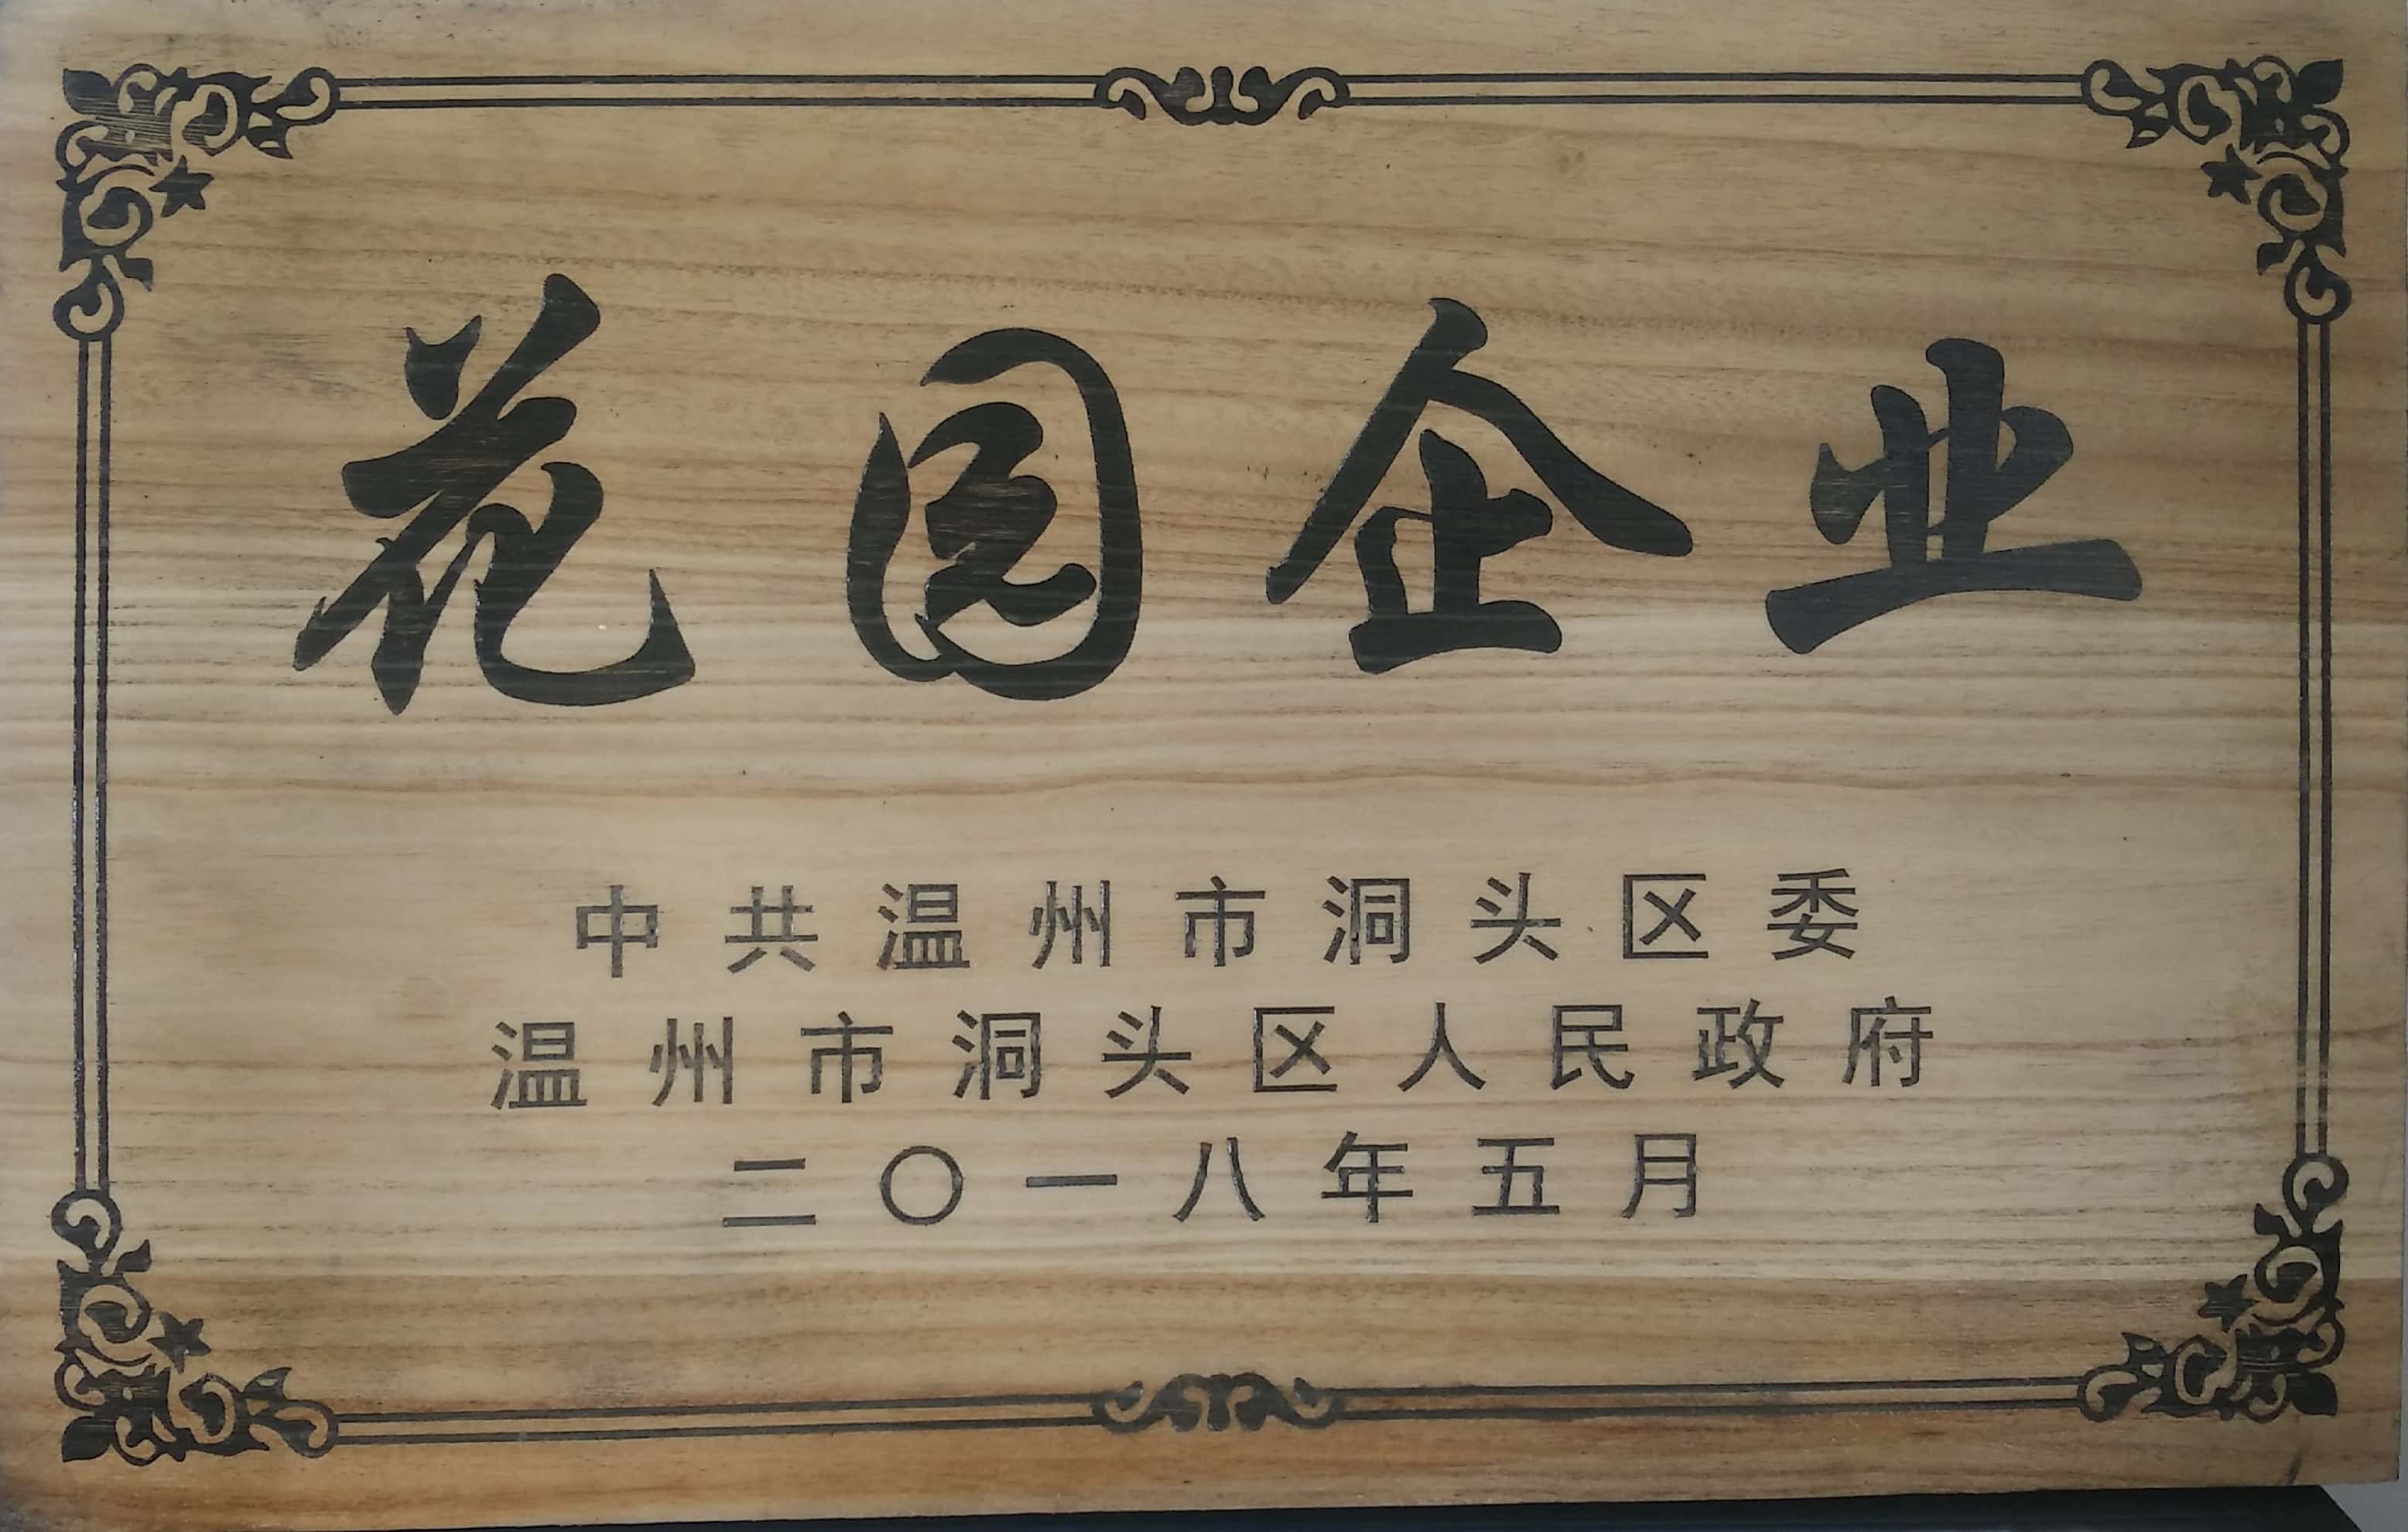 花园企业
中共温州市洞头区委
温州市洞头区人民政府
二〇一八年五月